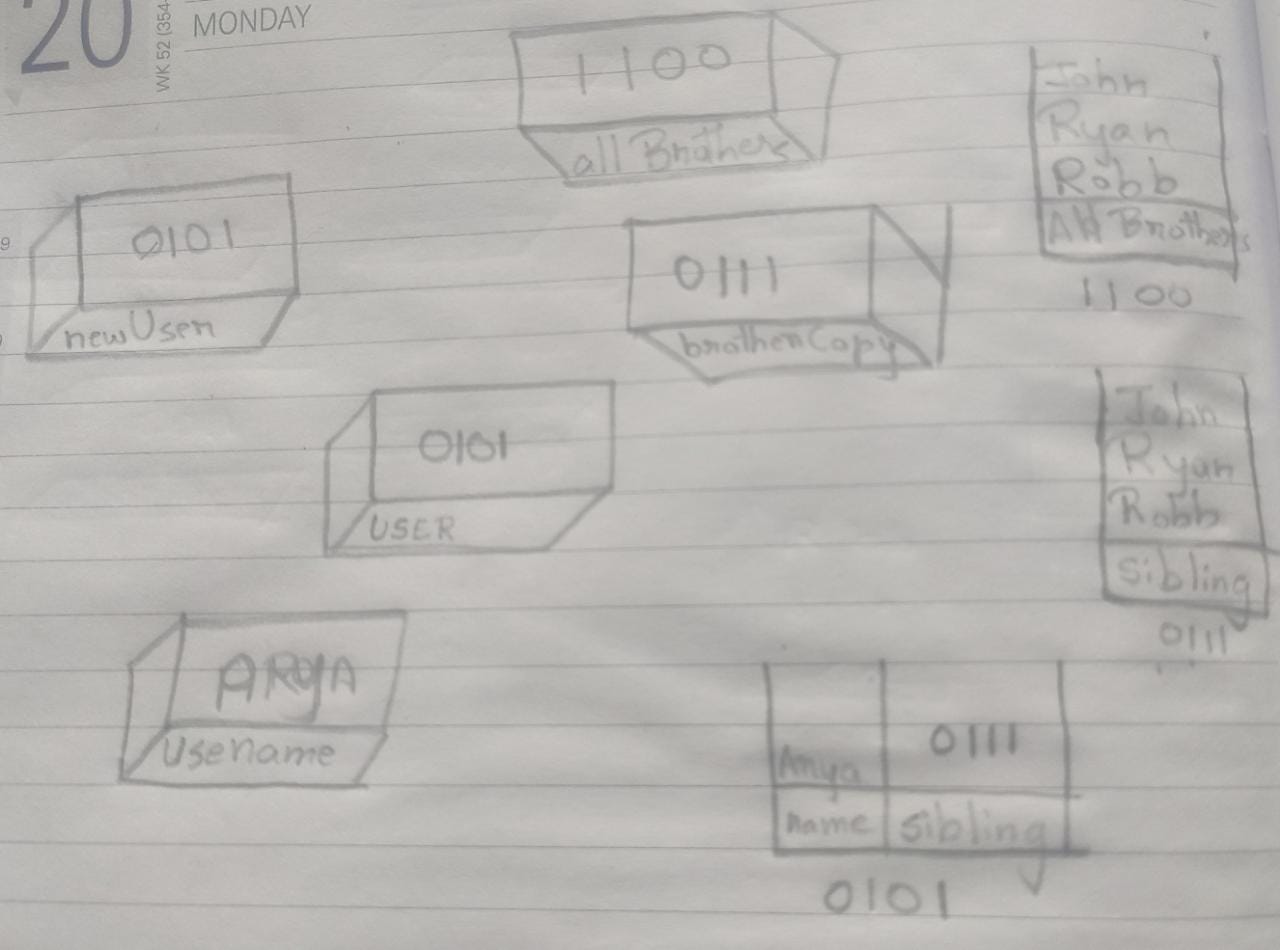 20
WK 52 (354-
MONDAY
1100
all Brothers
John
Ryan
Robb
All Brothers
1100
9
0101
newUser
0111
brotherCopy
0101
USER
John
Ryan
Robb
Sibling
0111
ARYA
Usename
Arya 0111
name sibling
0101